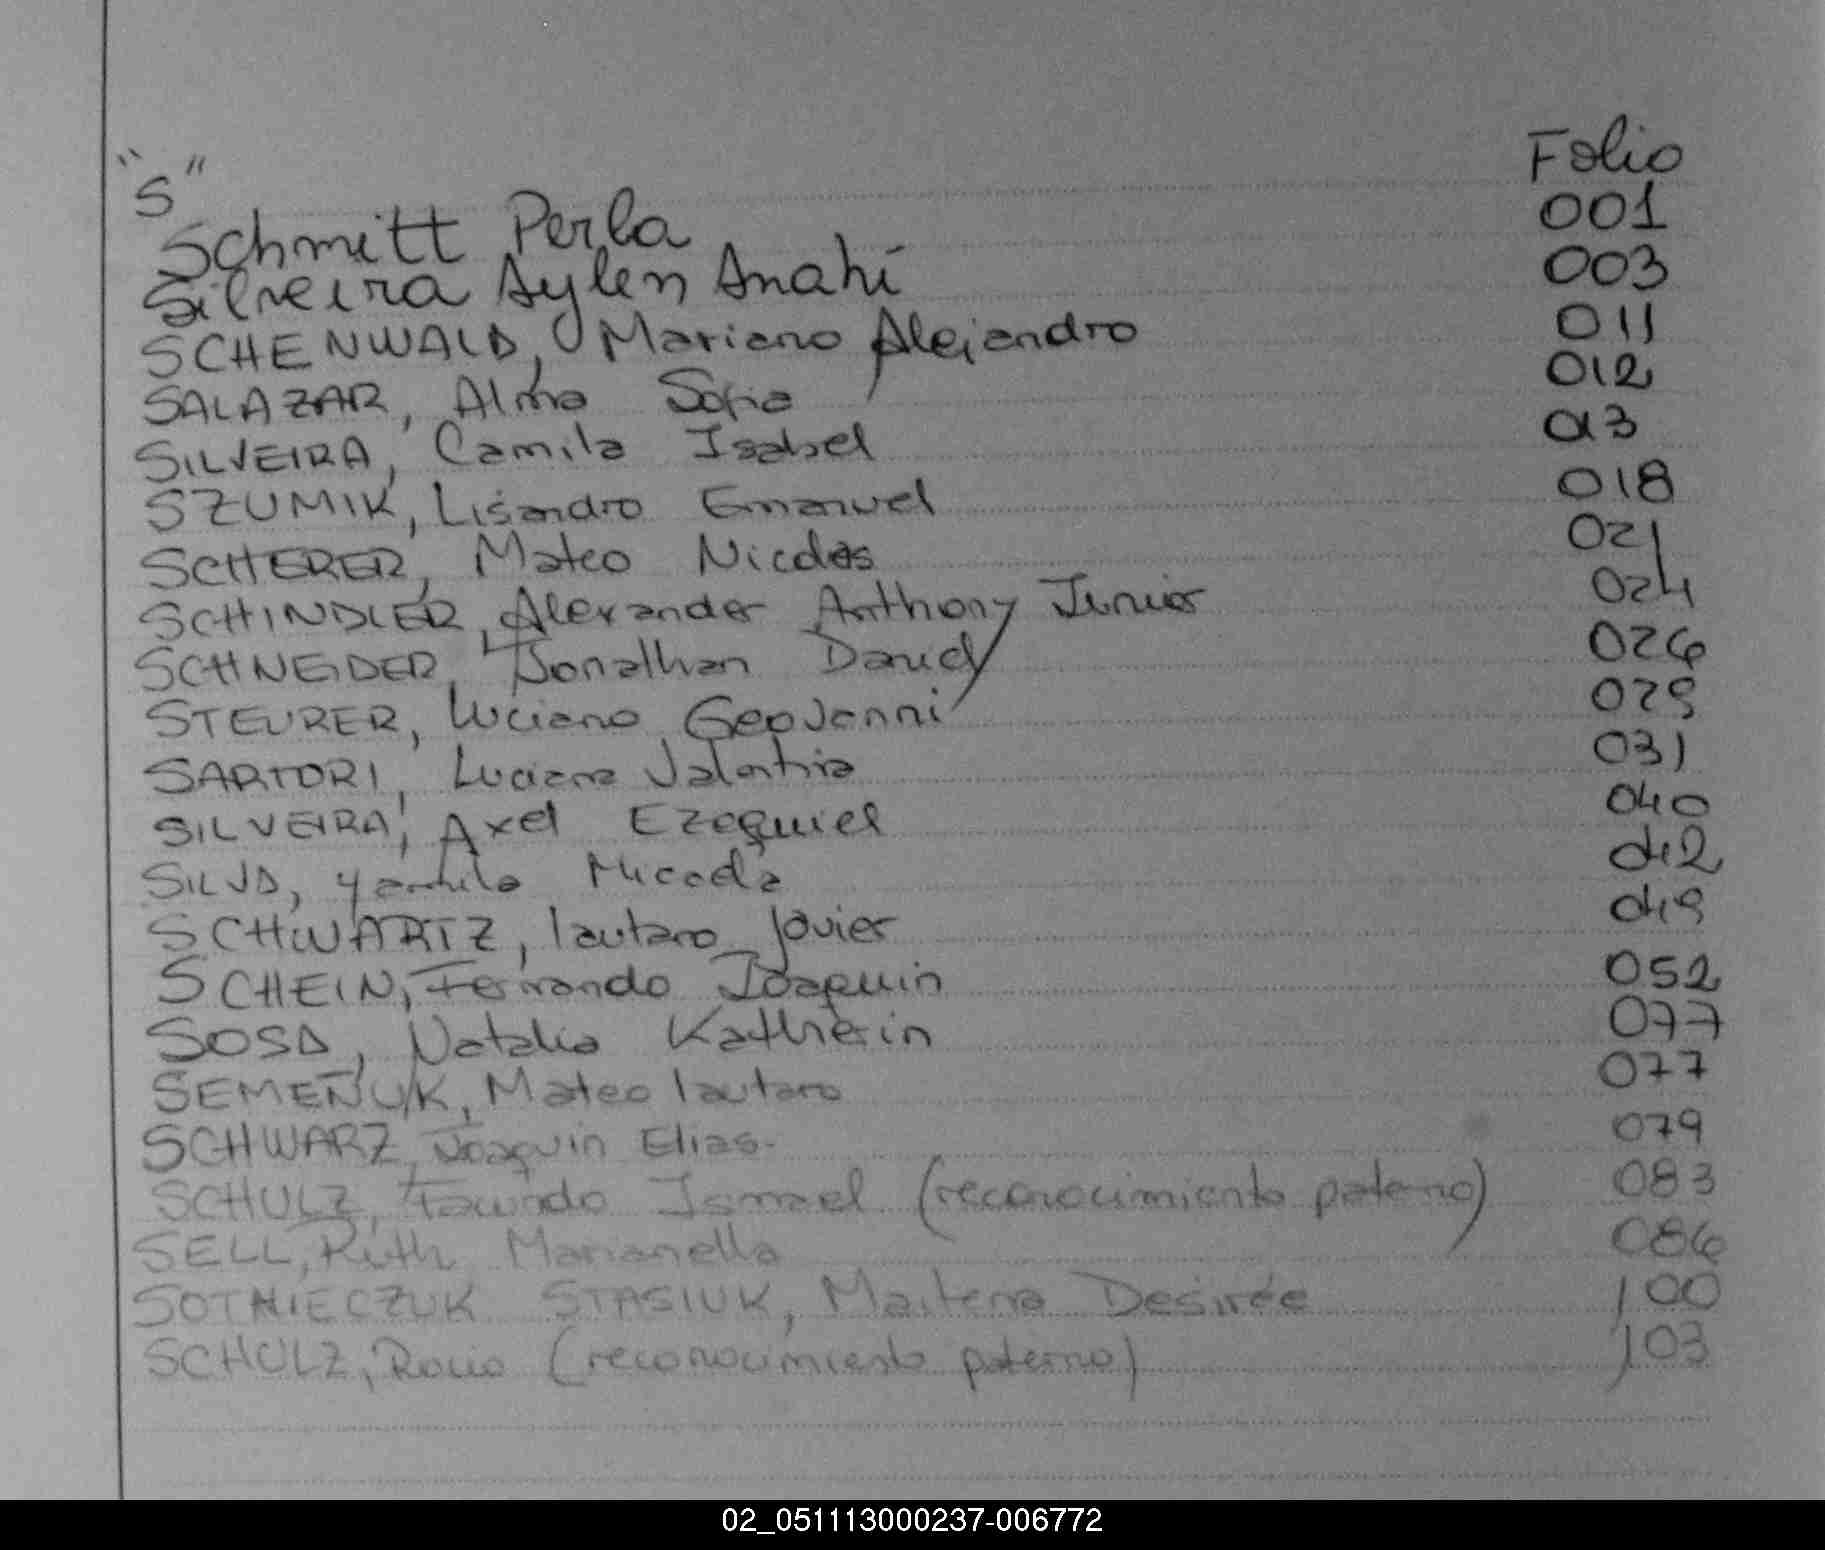 "S" Folio
Schmitt Perla 001
Silveira Aylen Anahí 003
SCHENWALD, Mariano Alejandro 011
SALAZAR, Alma Sofia 012
SILVEIRA, Camila Isabel 013
SZUMIK, Lisandro Emanuel 018
SCHERER, Mateo Nicolás 021
SCHINDLER, Alexander Anthony Junior 024
SCHNEIDER, Jonathan David 026
STEURER, Luciano Geovanni 029
SARTORI, Luciana Valentina 031
SILVEIRA, Axel Ezequiel 040
SILVA, Yamila Micaela 042
SCHWARTZ, Lautaro Javier 049
SCHEIN, Fernando Joaquin 052
SOSA, Natalia Katherin 077
SEMEÑUK, Mateo Lautaro 077
SCHWARZ, Joaquin Elias. 079
SCHULZ, Facundo Ismael (reconocimiento paterno) 083
SELL, Ruth Marianella 086
SOTNIECZUK STASIUK, Maitena Desirée 100
SCHULZ, Rocio (reconocimiento paterno) 103
02_051113000237-006772